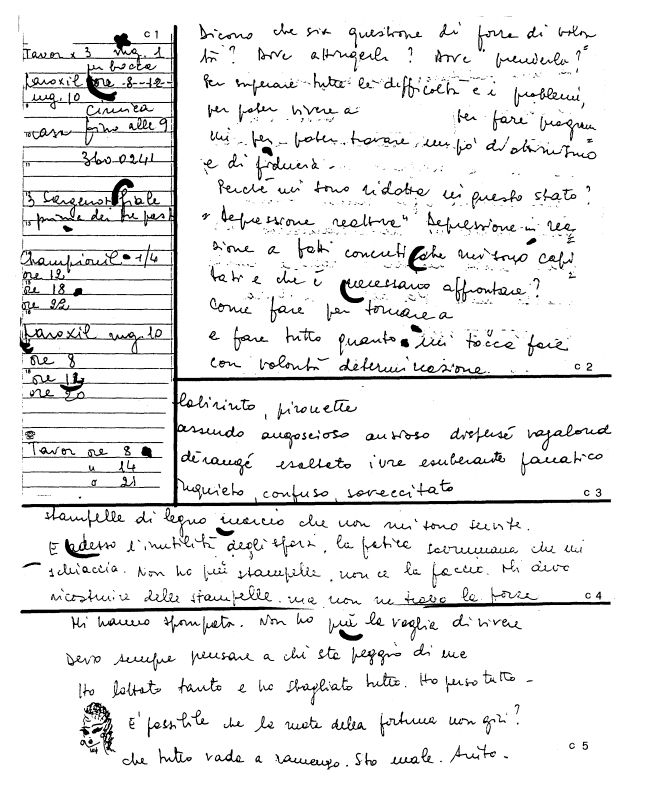 c 1
Tavor x 3 mg. 1
per bocca
Daroxil ore 8-12-
mg. 10
casa fino alle 9
360 0241
3 Sargenor fiale
prima dei tre pasti
Championil 1/4
ore 12
ore 18
ore 22
Daroxil mg. 10
ore 8
ore 12
ore 20
Tavor ore 8
" 14
" 21
Dicono che sia questione di forza di volon
tà? Dove attingerla? Dove prenderla?
Per superare tutte le difficoltà e i problemi,
per poter vivere a per fare program
mi per poter trovare un po' di ottimismo
e di fiducia.
Perché mi sono ridotta in questo stato?
"Depressione reattiva" Depressione in rea
zione a fatti concreti che mi sono capi
tati e che è necessario affrontare?
Come fare per tornare a
e fare tutto quanto mi tocca fare
con volontà determinazione.
c 2
labirinto, piroette
assurdo angoscioso ansioso dispersé vagabond
dérangé esaltato ivre esuberante fanatico
inquieto, confuso, sovreccitato
c 3
stampelle di legno marcio che non mi sono servite.
E adesso l'inutilità degli sforzi, la fatica sovrumana che mi
schiaccia. Non ho più stampelle, non ce la faccio. Mi devo
ricostruire delle stampelle. ma non ne trovo la forza
c 4
Mi hanno spompata. Non ho più la voglia di vivere
Devo sempre pensare a chi sta peggio di me
Ho lottato tanto e ho sbagliato tutto. Ho perso tutto -
E' possibile che la ruota della fortuna non giri?
che tutto vada a ramengo. Sto male. Aiuto -
c 5